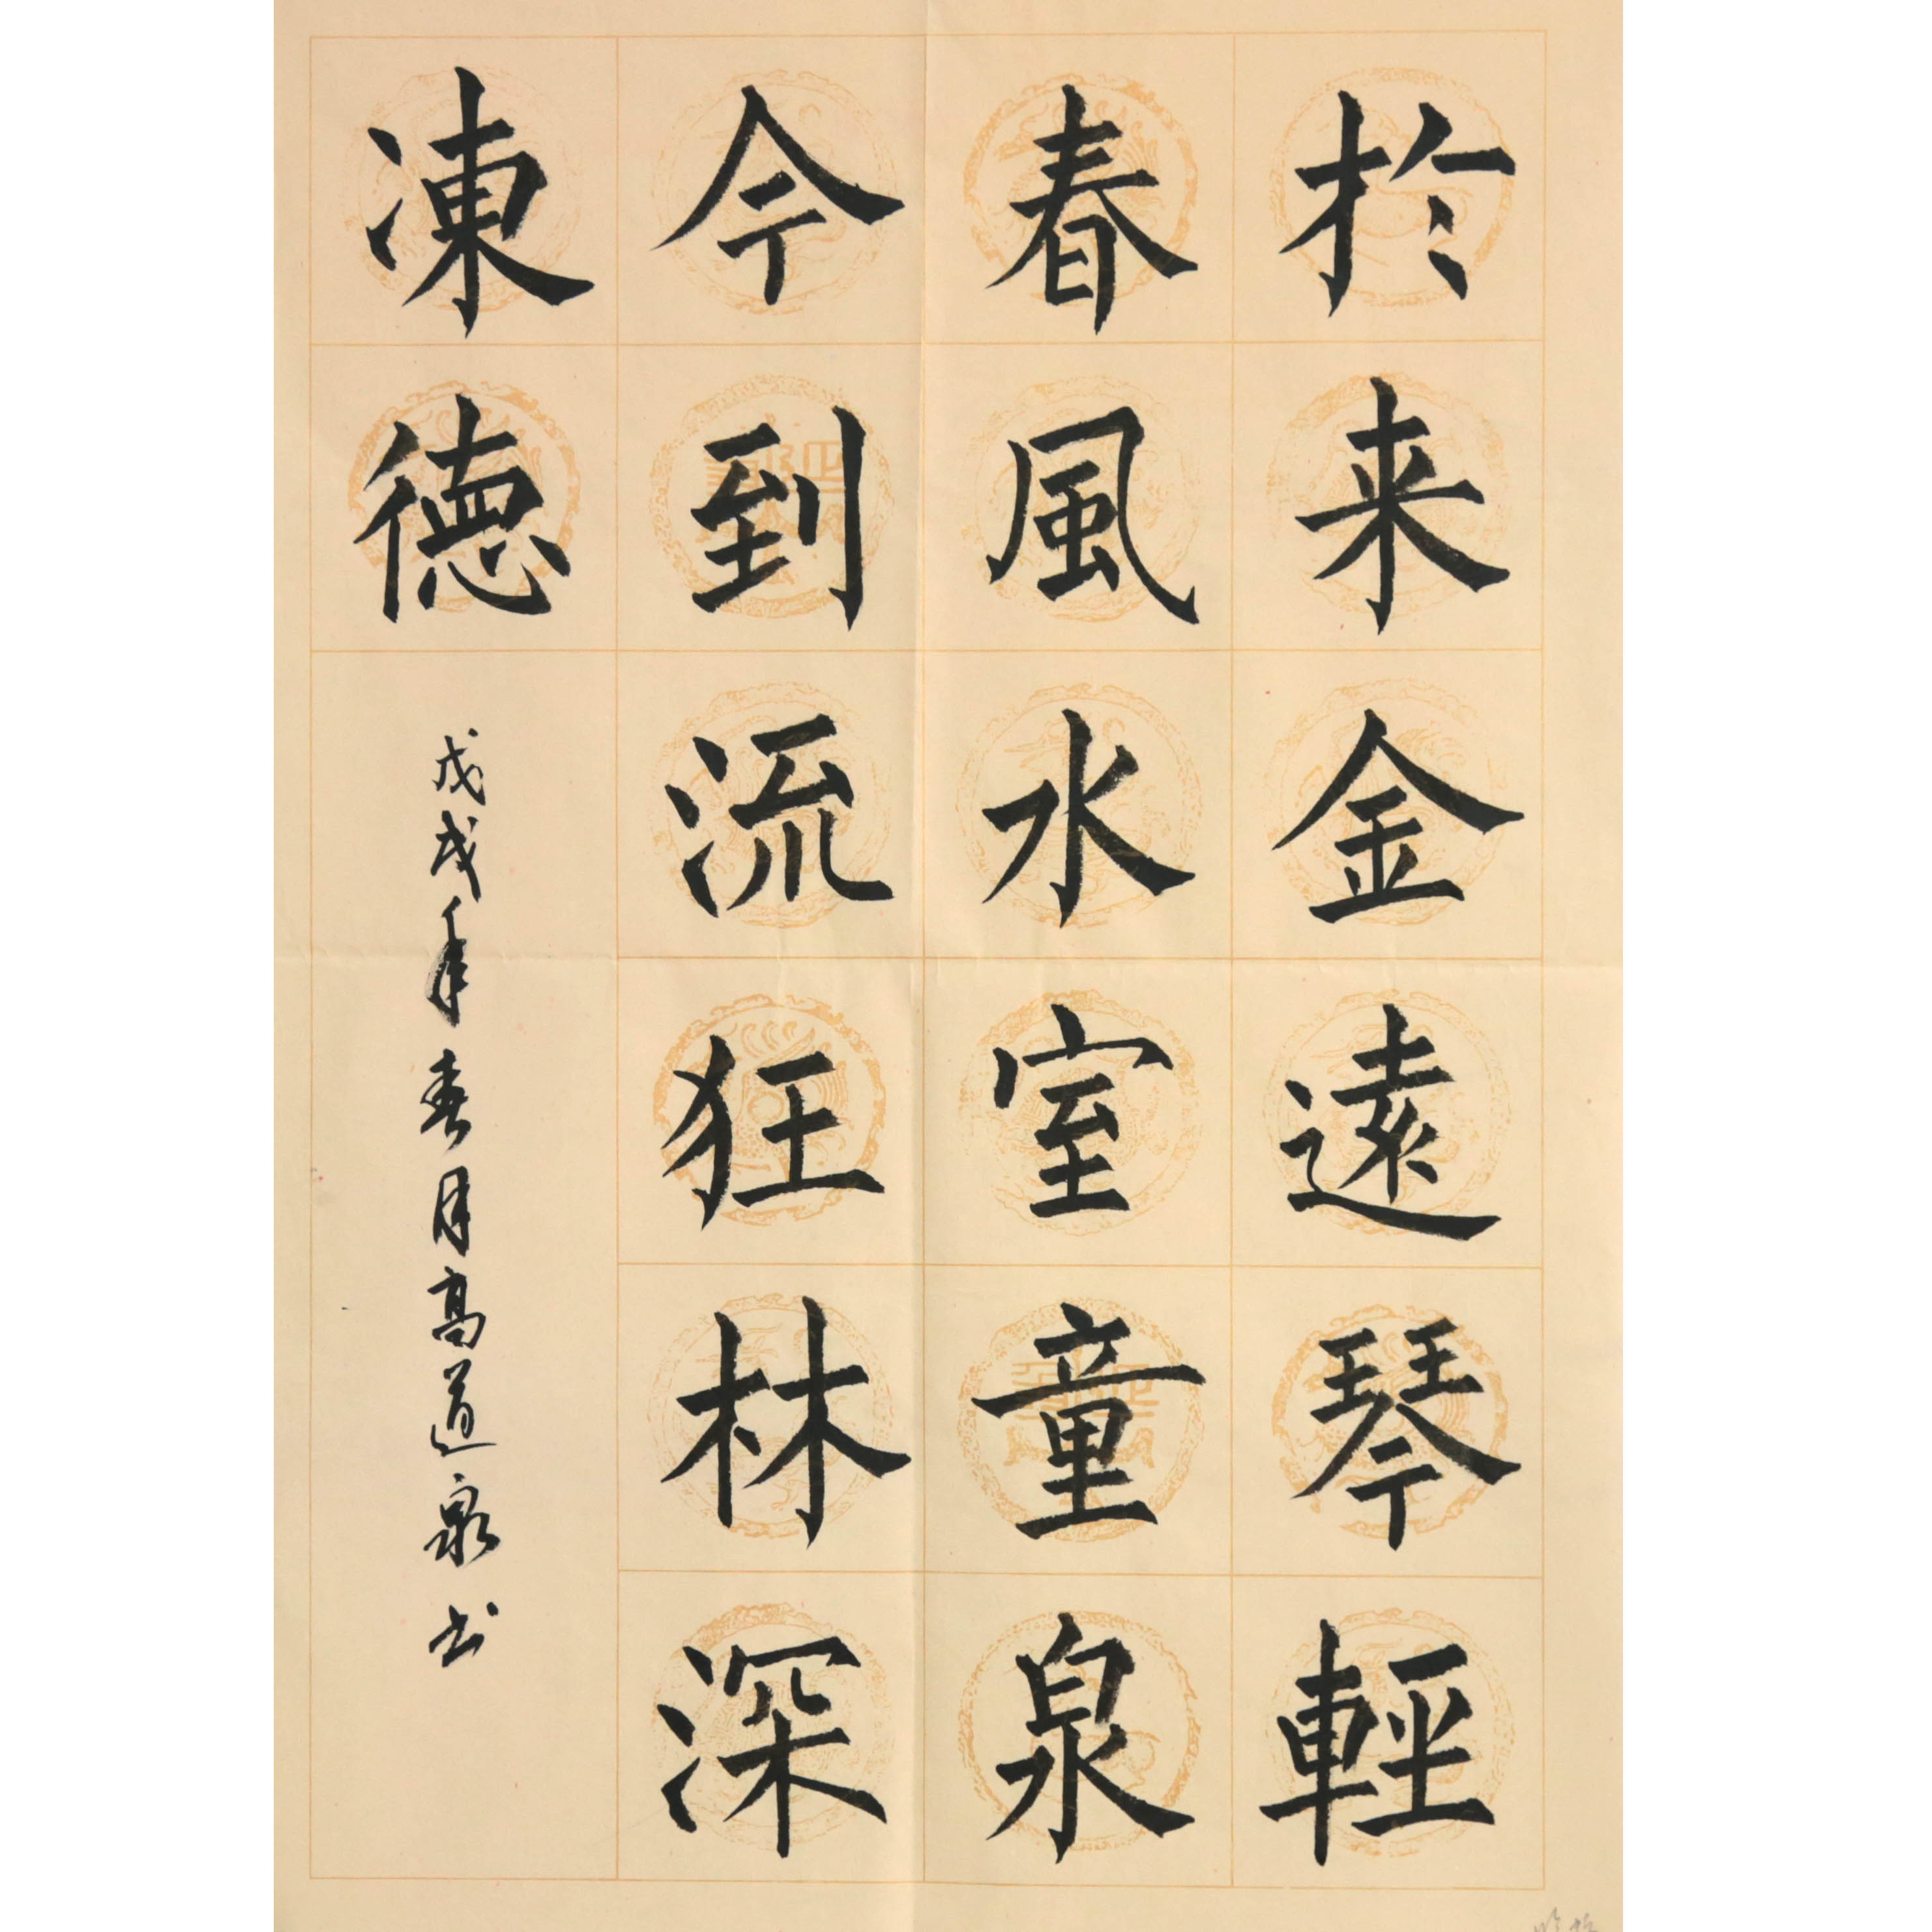 於来金遠琴輕
春風水室童泉
今到流狂林深
凍德
戊戌年春月高道泉书